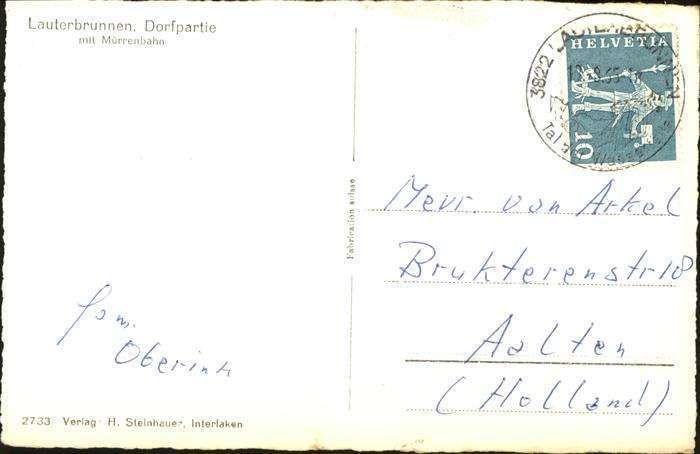 Lauterbrunnen, Dorfpartie
mit Mürrenbahn
HELVETIA
3822 LAUTERBRUNNEN
10
Fabrication suisse
Mevr. van Arkel
Brukterenstr 18
Aalten
(Holland)
fam.
Oberink
2733 Verlag H. Steinhauer, Interlaken